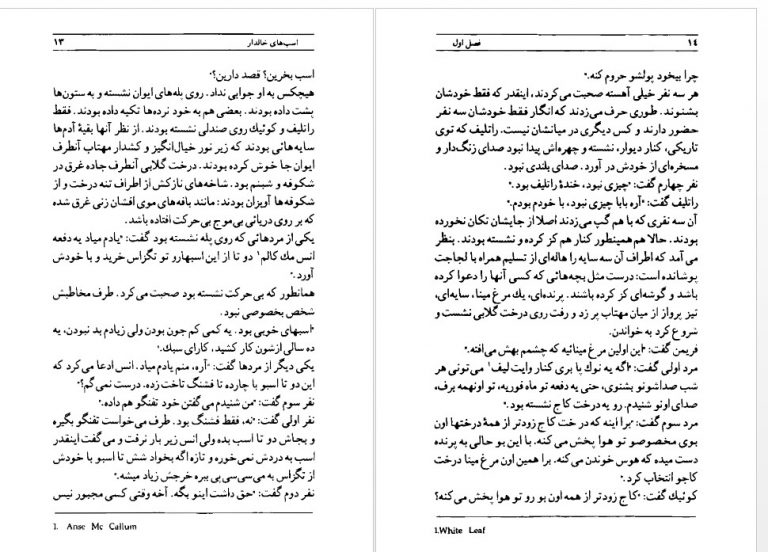 ۱۳ اسب‌های خالدار
اسب بخرین؟ قصد دارین؟"
هیچکس به او جوابی نداد. روی پله‌های ایوان نشسته و به ستون‌ها
پشت داده بودند. بعضی هم به خود نرده‌ها تکیه داده بودند. فقط
راتلیف و کوئیك روی صندلی نشسته بودند. از نظر آنها بقیهٔ آدم‌ها
سایه‌هائی بودند که زیر نور خیال‌انگیز و کشدار مهتاب آنطرف
ایوان جا خوش کرده بودند. درخت گلابی آنطرف جاده غرق در
شکوفه و شبنم بود. شاخه‌های نازکش از اطراف تنه درخت و از
شکوفه‌ها آویزان بودند: مانند بافه‌های موی افشان زنی غرق شده
که بر روی دریائی بی‌موج بی‌حرکت افتاده باشد.
یکی از مردهائی که روی پله نشسته بود گفت: "یادم میاد یه دفعه
انس مك کالم۱ دو تا از این اسبهارو تو تگزاس خرید و با خودش
آورد."
همانطور که بی‌حرکت نشسته بود صحبت می‌کرد. طرف مخاطبش
شخص بخصوصی نبود.
"اسبهای خوبی بود. یه کمی کم جون بودن ولی زیادم بد نبودن، یه
ده سالی ازشون کار کشید، کارای سبك."
یکی دیگر از مردها گفت: "آره، منم یادم میاد. انس ادعا می‌کرد که
این دو تا اسبو با چارده تا فشنگ تاخت زده. درست نمی‌گم؟"
نفر سوم گفت: "من شنیدم می‌گفتن خود تفنگو هم داده."
نفر اولی گفت: "نه، فقط فشنگ بود. طرف می‌خواست تفنگو بگیره
و بجاش دو تا اسب بده ولی انس زیر بار نرفت و می‌گفت اینقدر
اسب به دردش نمی‌خوره و تازه اگه بخواد شش تا اسبو با خودش
از تگزاس به می‌سی‌سی پی ببره خرجش زیاد میشه."
نفر دوم گفت: "حق داشت اینو بگه. آخه وقتی کسی مجبور نیس
1. Anse Mc Callum
فصل اول ۱۴
چرا بیخود پولشو حروم کنه."
هر سه نفر خیلی آهسته صحبت می‌کردند، اینقدر که فقط خودشان
بشنوند. طوری حرف می‌زدند که انگار فقط خودشان سه نفر
حضور دارند و کس دیگری در میانشان نیست. راتلیف که توی
تاریکی، کنار دیوار، نشسته و چهره‌اش پیدا نبود صدای زنگ‌دار و
مسخره‌ای از خودش در آورد. صدای بلندی نبود.
نفر چهارم گفت: "چیزی نبود، خندهٔ راتلیف بود."
راتلیف گفت: "آره بابا چیزی نبود، با خودم بودم."
آن سه نفری که با هم گپ می‌زدند اصلا از جایشان تکان نخورده
بودند. حالا هم همینطور کنار هم کز کرده و نشسته بودند. بنظر
می آمد که اطراف آن سه سایه را هاله‌ای از تسلیم همراه با لجاجت
پوشانده است: درست مثل بچه‌هائی که کسی آنها را دعوا کرده
باشد و گوشه‌ای کز کرده باشند. پرنده‌ای، یك مرغ مینا، سایه‌ای،
تیز پرواز از میان مهتاب پر زد و رفت روی درخت گلابی نشست و
شروع کرد به خواندن.
فریمن گفت: "این اولین مرغ مینائیه که چشمم بهش می‌افته."
مرد اولی گفت: "اگه یه نوك پا بری کنار وایت لیف۱ می‌تونی هر
شب صداشونو بشنوی، حتی یه دفعه تو ماه فوریه، تو اونهمه برف،
صدای اونو شنیدم. رو یه درخت کاج نشسته بود."
مرد سوم گفت: "برا اینه که درخت کاج زودتر از همهٔ درختها اون
بوی مخصوصو تو هوا پخش می کنه. با این بو حالی به پرنده
دست میده که هوس خوندن می‌کنه. برا همین اون مرغ مینا درخت
کاجو انتخاب کرد."
کوئیك گفت: "کاج زودتر از همه اون بو رو تو هوا پخش می‌کنه؟
1.White Leaf